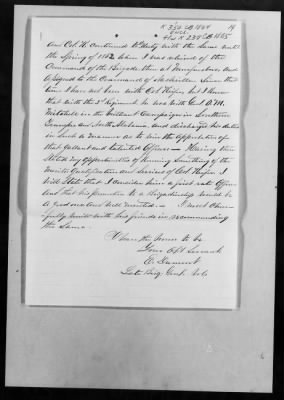 and Col K. continued to duty with the same until
the Spring of 1862 when I was relieved of the
Command of the Brigade then at Murfreesboro and
assigned to the Command of Nashville Since that
time I have not been with Col Keifer but I know
that with the 3d Regiment he was with Genl O. M.
Mitchell in his brilliant Campaign in Southern
Tennessee and North Alabama and discharged his duties
in such a manner as to win the approbation of
that gallant and talented Officer — Having thus
stated my opportunities of knowing something of the
merits qualifications and services of Col Keifer I
will state that I consider him a first rate Officer
and that his promotion to a Brigadiership would be
a good one and well merited. — I most cheer-
fully unite with his friends in recommending
the same.
I have the honor to be
Your Obt Servant
E. Dumont
Late Brig. Genl. Vols